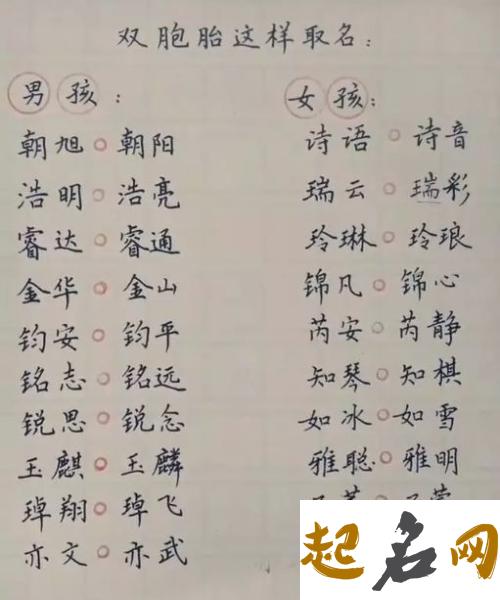 双胞胎这样取名：
男孩：
朝旭。朝阳
浩明。浩亮
睿达。睿通
金华。金山
钧安。钧平
铭志。铭远
锐思。锐念
玉麒。玉麟
琸翔。琸飞
亦文。亦武
女孩：
诗语。诗音
瑞云。瑞彩
玲琳。玲琅
锦凡。锦心
芮安。芮静
知琴。知棋
如冰。如雪
雅聪。雅明
起名网